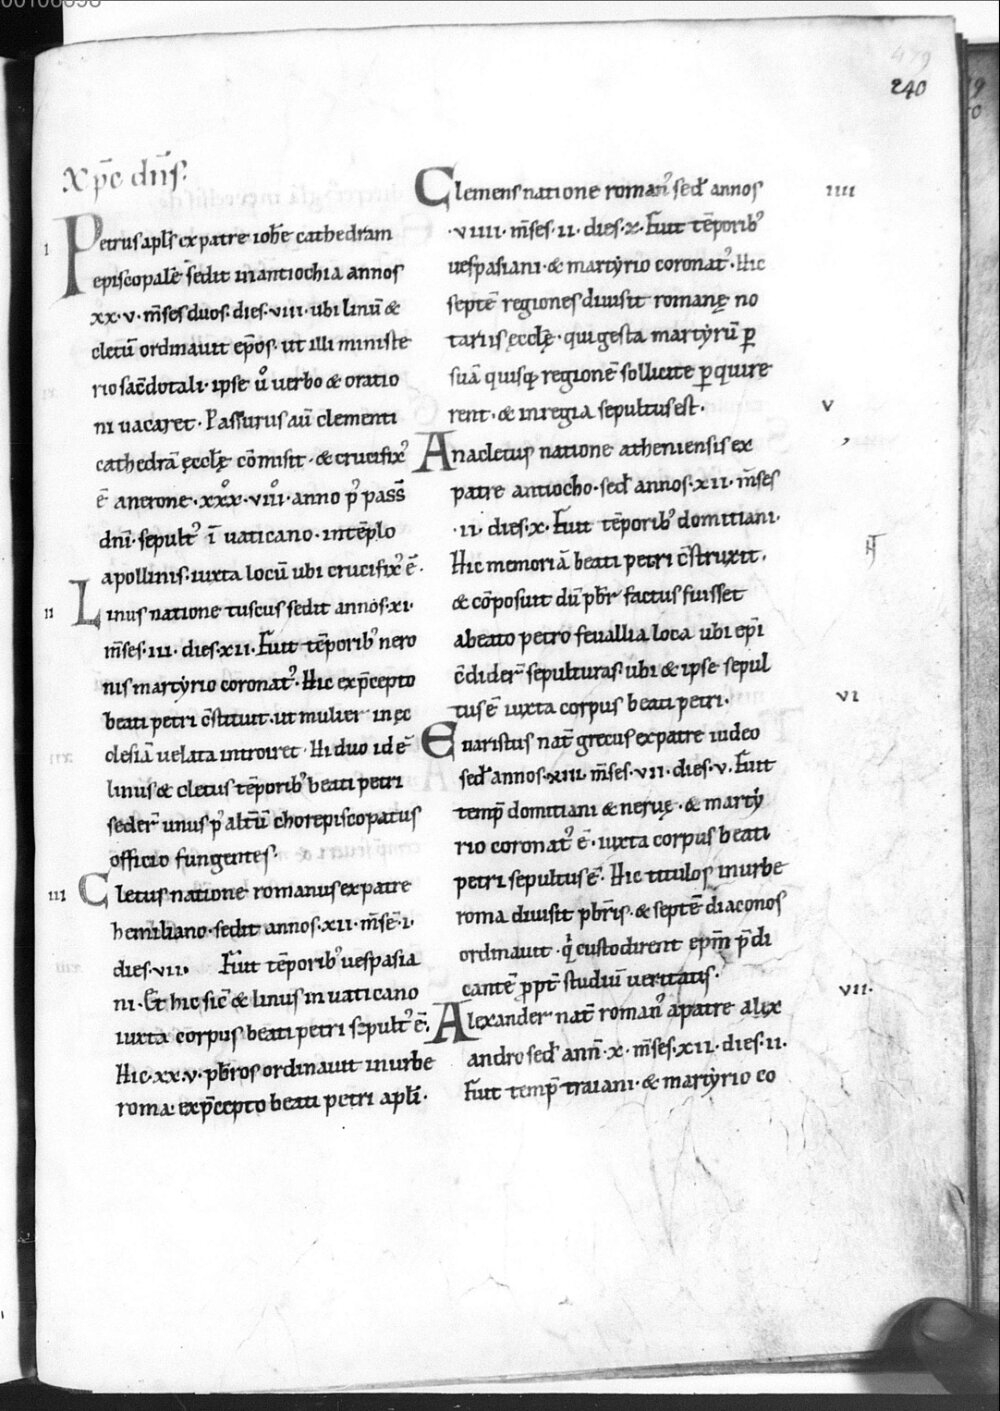 00106098
479
240
xp̄e dn̄s.
I Petrus apl̄s ex patre ioh̄e cathedram
episcopalē sedit in antiochia annos
xx·v· m̄ses duos· dies·viii· ubi linū &
cletū ordinauit ep̄os· ut illi ministe
rio sac̄dotali· ipse ů uerbo & oratio
ni uacaret· Passurus aū clementi
cathedrā ęcclę cōmisit· & crucifixꝰ
ē a nerone·xxx·viii· anno pꝰ pass̄
dn̄i· sepultꝰ ī uaticano· in tēplo
apollinis· iuxta locū ubi crucifixꝰ ē·
II Linus natione tuscus sedit annos·xi·
m̄ses·iii· dies·xii· Fuit tēporibꝰ nero
nis martyrio coronatꝰ· Hic ex p̄cepto
beati petri c̄stituit· ut mulier in ęc
clesiā uelata introiret· Hi duo id ē
linus & cletus tēporibꝰ beati petri
seder̄ unus pꝰ altū chorepiscopatus
officio fungentes·
III Cletus natione romanus ex patre
hemiliano· sedit annos·xii· m̄sē·i·
dies·vii· Fuit tēporibꝰ uespasia
ni· Et hic sic̄ & linus in uaticano
iuxta corpus beati petri sepultꝰ ē·
Hic·xx·v· pb̄ros ordinauit in urbe
roma ex p̄cepto beati petri apl̄i·
Clemens natione romanꝰ sed̄ annos IIII
·viiii· m̄ses·ii· dies·x· Fuit tēporibꝰ
uespasiani· & martyrio coronatꝰ· Hic
septē regiones diuisit romanę no
tariis ęcclę· qui gesta martyrū ꝑ
suā quisqꝫ regionē sollicite ꝑquire
rent· & in regia sepultus est· V
Anacletus natione atheniensis ex
patre antiocho· sed̄ annos·xii· m̄ses
·ii· dies·x· Fuit tēporibꝰ domitiani·
Hic memoriā beati petri c̄struxit·
& cōposuit dū pb̄r factus fuisset
a beato petro seu allia loca ubi ep̄i
c̄dider̄ sepulturas· ubi & ipse sepul
tus ē iuxta corpus beati petri· VI
Euaristus nat̄ grecus ex patre iudeo
sed̄ annos·xiii· m̄ses·vii· dies·v· Fuit
temp̄ domitiani & neruę· & marty
rio coronatꝰ ē· iuxta corpus beati
petri sepultus ē· Hic titulos in urbe
roma diuisit pb̄ris· & septē diaconos
ordinauit· q̇ custodirent ep̄m p̄di
cantē ꝓpt̄ studiū ueritatis· VII·
Alexander nat̄ romanꝰ a patre alex
andro sed̄ ann̄·x· m̄ses·xii· dies·ii·
Fuit temp̄ traiani· & martyrio co